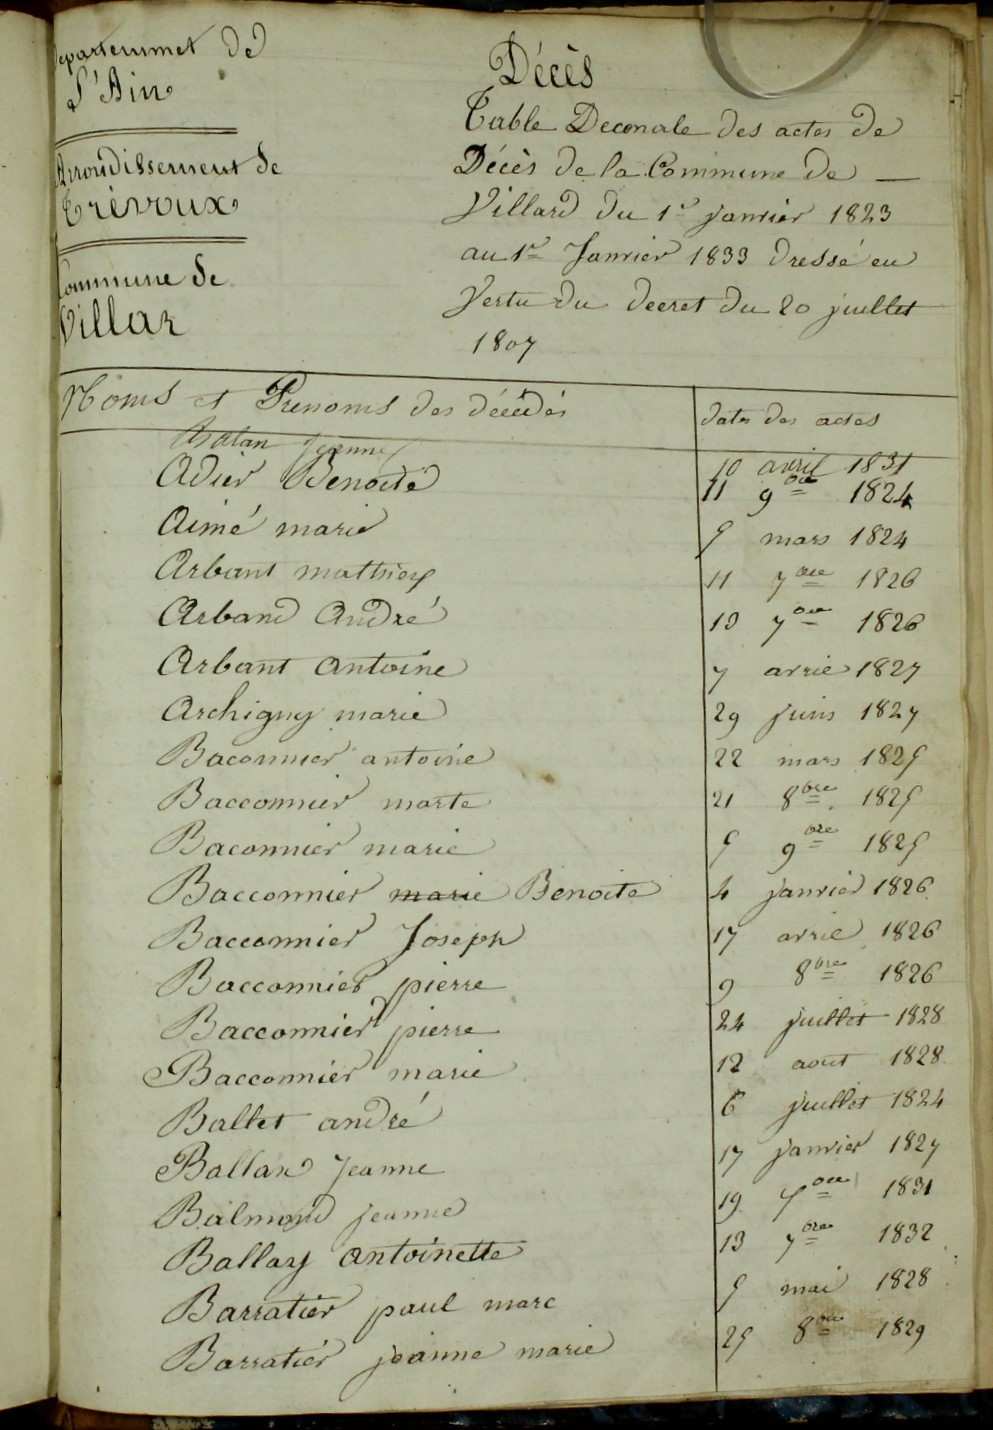 Departemmet de
l'Ain
Arrondissement de
Trévoux
Commune de
Villar
Décès
Table Decenale des actes de
Décès de la Commune de
Villard du 1er janvier 1823
au 1er Janvier 1833 dressé en
Vertu du decret du 20 juillet
1807
Noms et Prenoms des décédés dates des actes
Jeanne 10 avril 1831
Adier Benoite 11 9bre 1824
Aimé marie 5 mars 1824
Arbant mathieu 11 7bre 1826
Arband André 13 7bre 1826
Arbant antoine 7 avril 1827
Archigny marie 29 juin 1827
Baconnier antoine 22 mars 1825
Bacconnier marte 21 8bre 1825
Baconnier marie 5 9bre 1825
Bacconnier marie Benoite 4 janvier 1826
Bacconnier Joseph 17 avril 1826
Bacconnier pierre 9 8bre 1826
Bacconnier pierre 24 juillet 1828
Bacconnier marie 12 aout 1828
Ballet andré 6 juillet 1824
Ballan Jeanne 17 janvier 1827
Balmond jeanne 19 7bre 1831
Ballay antoinette 13 7bre 1832
Barratier paul marc 5 mai 1828
Barratier jeanne marie 25 8bre 1829